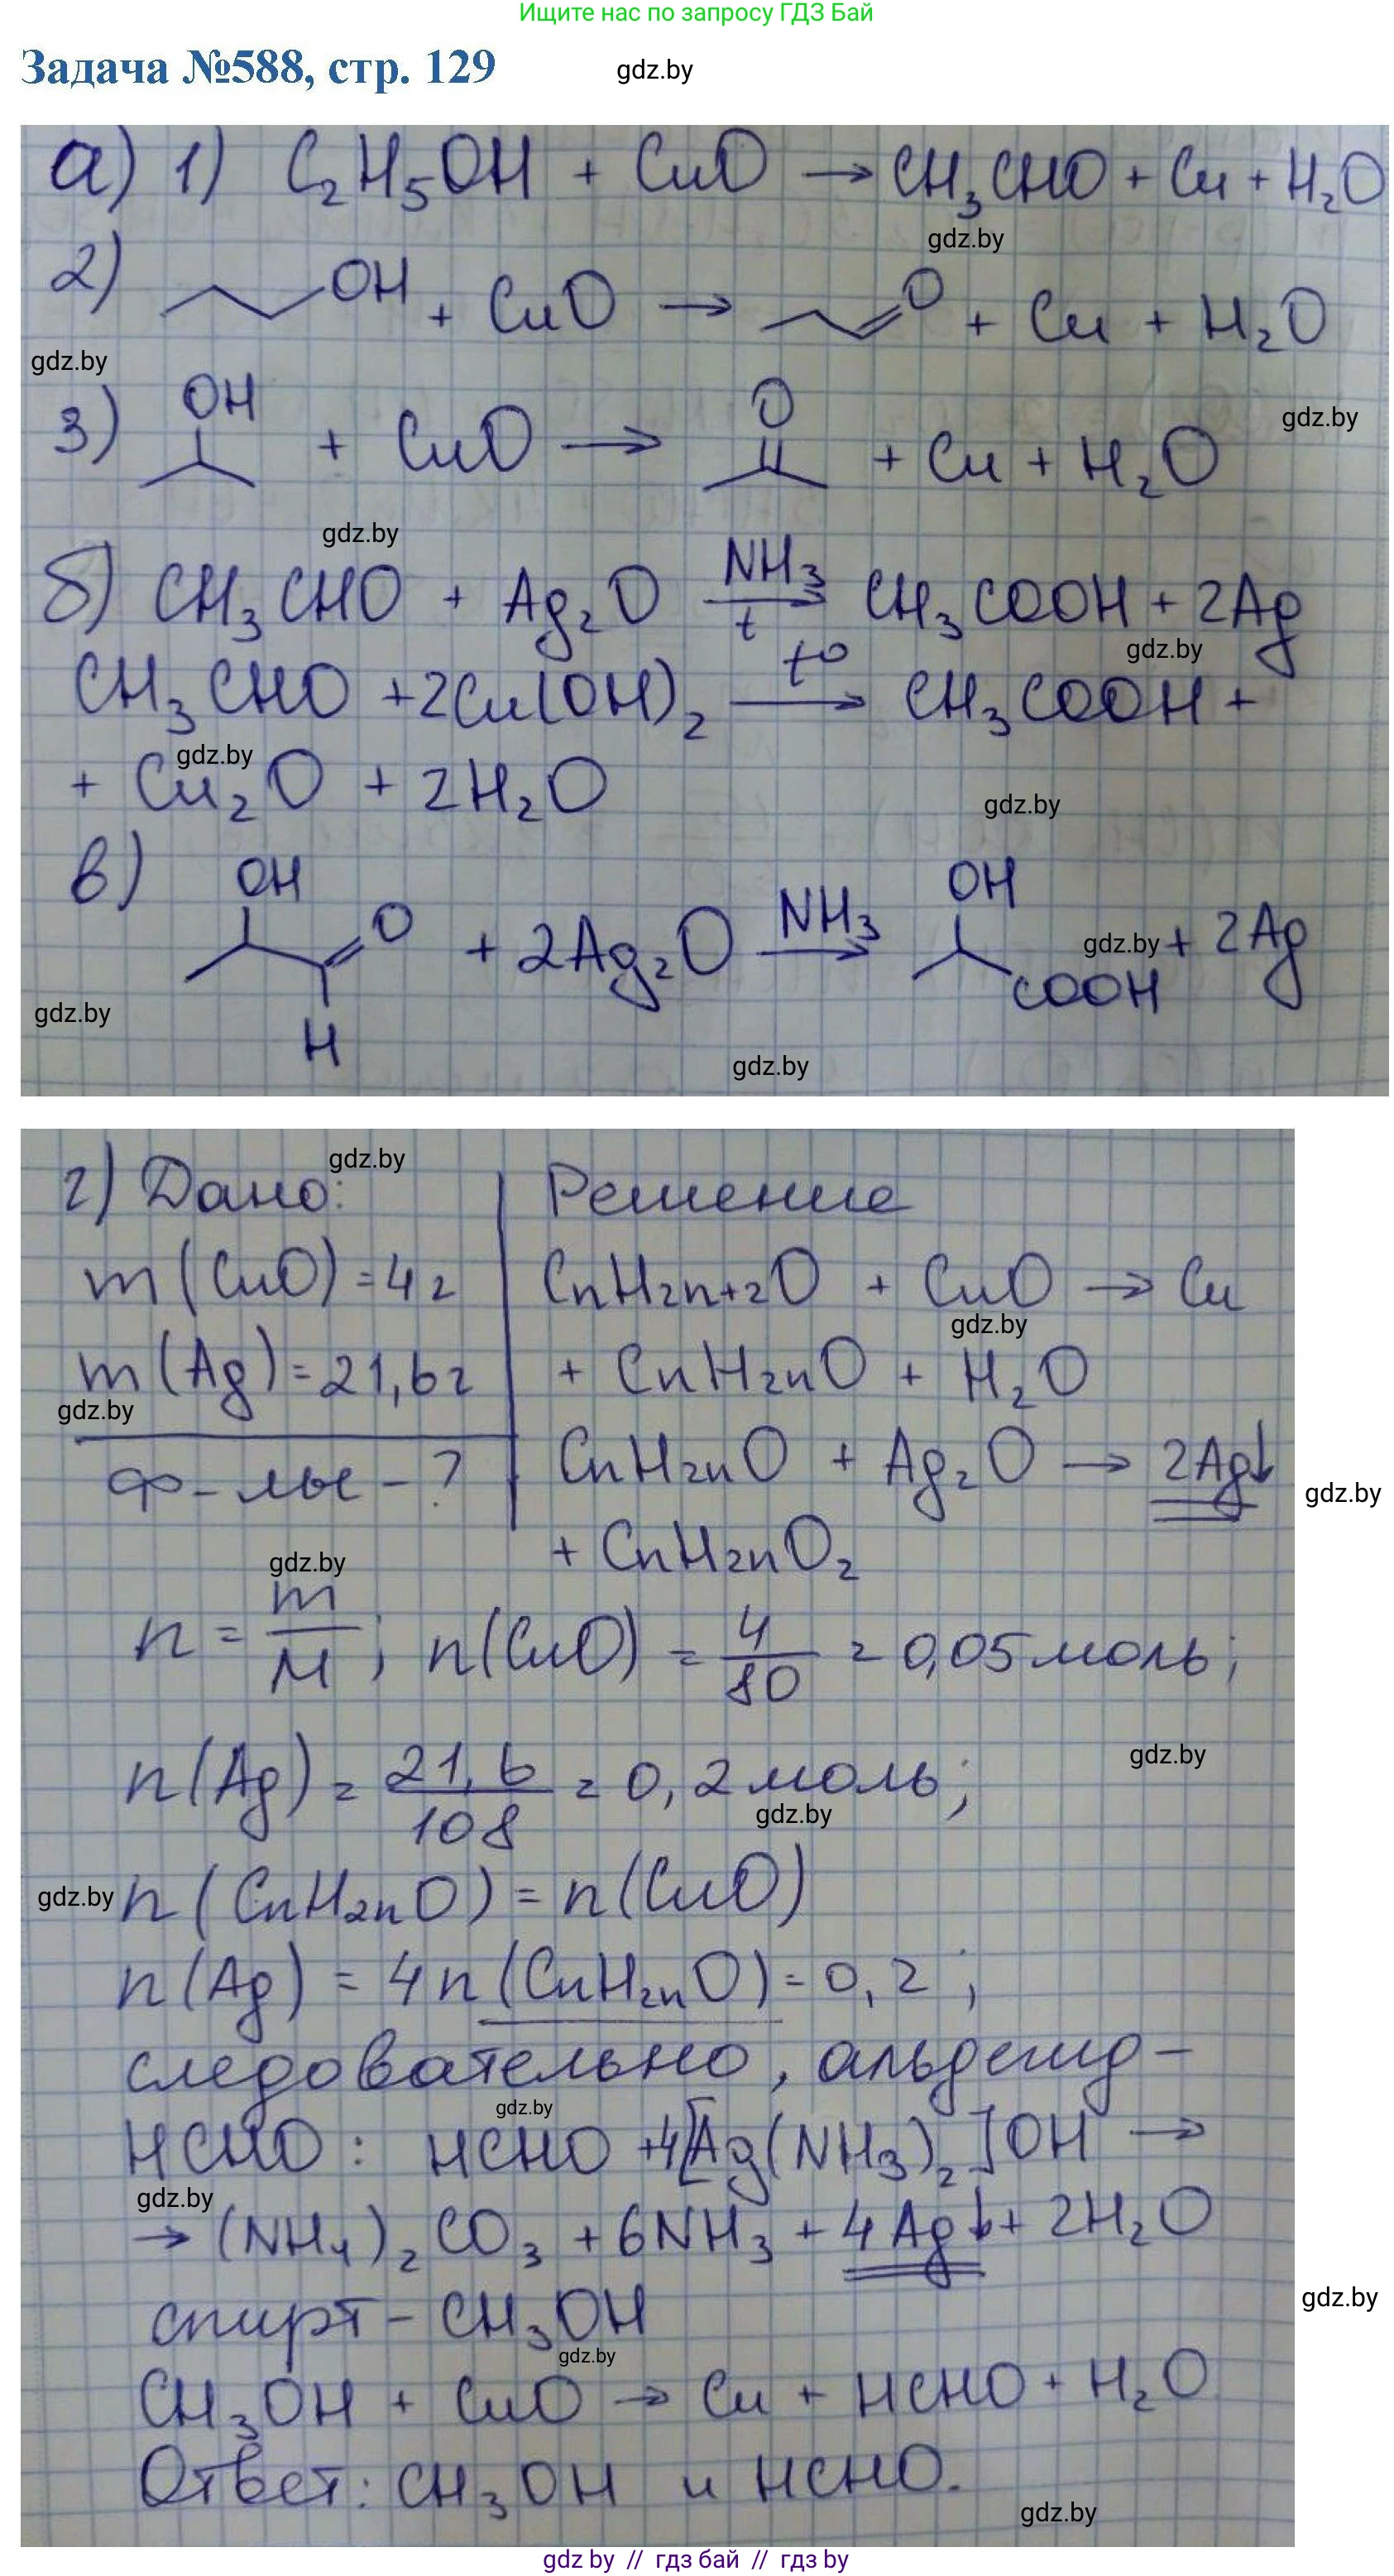 Ищите нас по запросу ГДЗ Бай
Задача №588, стр. 129
gdz.by
а) 1) C₂H₅OH + CuO → CH₃CHO + Cu + H₂O
gdz.by
2) OH + CuO → O + Cu + H₂O
gdz.by
3) OH + CuO → O + Cu + H₂O
gdz.by
gdz.by
б) CH₃CHO + Ag₂O NH₃ → t CH₃COOH + 2Ag
gdz.by
CH₃CHO + 2Cu(OH)₂ t° → CH₃COOH +
gdz.by
+ Cu₂O + 2H₂O
gdz.by
в) OH O H + 2Ag₂O NH₃ → OH COOH + 2Ag
gdz.by
gdz.by
gdz.by
г) Дано: Решение
gdz.by
m(CuO)=4г CnH2n+2O + CuO → Cu
gdz.by
m(Ag)=21,6г + CnH2nO + H₂O
gdz.by
ф-лы - ? CnH2nO + Ag₂O → 2Ag↓
gdz.by
+ CnH2nO₂
gdz.by
n = m/M; n(CuO) = 4/80 = 0,05 моль;
gdz.by
n(Ag) = 21,6/108 = 0,2 моль;
gdz.by
gdz.by
n(CnH2nO) = n(CuO)
n(Ag) = 4n(CnH2nO) = 0,2;
следовательно, альдегид -
gdz.by
HCHO: HCHO +4[Ag(NH₃)₂]OH →
gdz.by
→ (NH₄)₂CO₃ + 6NH₃ + 4Ag↓ + 2H₂O
gdz.by
спирт - CH₃OH
gdz.by
CH₃OH + CuO → Cu + HCHO + H₂O
Ответ: CH₃OH и HCHO.
gdz.by
gdz by // гдз бай // гдз by